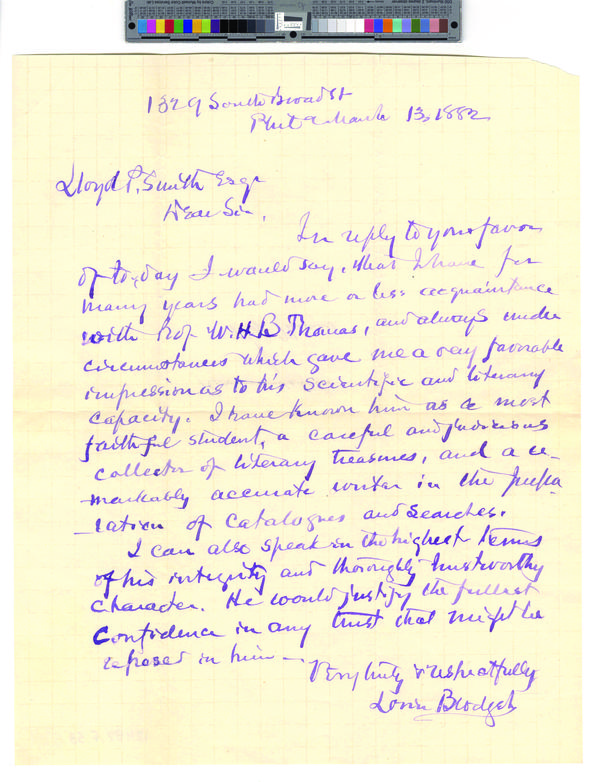 1829 South Broad St
Phila March 13, 1882
Lloyd P. Smith Esqr
Dear Sir,
In reply to your favor
of to-day I would say, that I have for
many years had more or less acquaintance
with Prof W. H B Thomas, and always under
circumstances which gave me a very favorable
impression as to his scientific and literary
capacity. I have known him as a most
faithful student, a careful and judicious
collector of literary treasures, and a re-
markably accurate writer in the prepa-
ration of catalogues and searches.
I can also speak in the highest terms
of his integrity and thoroughly trustworthy
character. He would justify the fullest
confidence in any trust that might be
reposed in him —
Very truly & respectfully
Lorin Blodget